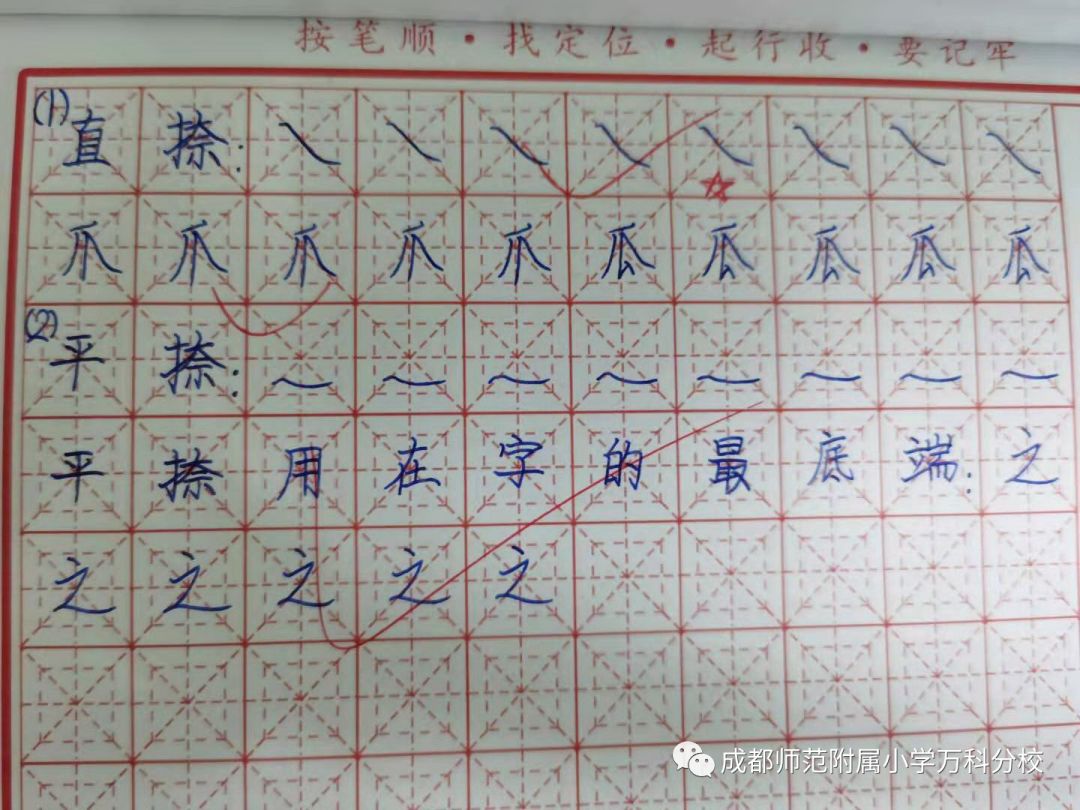 按笔顺·找定位·起行收·要记牢
(1)直捺:㇏㇏㇏㇏㇏㇏㇏㇏
爪爪爪爪爪瓜瓜瓜瓜瓜
(2)平捺:㇏㇏㇏㇏㇏㇏㇏㇏
平捺用在字的最底端:之
之之之之之
成都师范附属小学万科分校